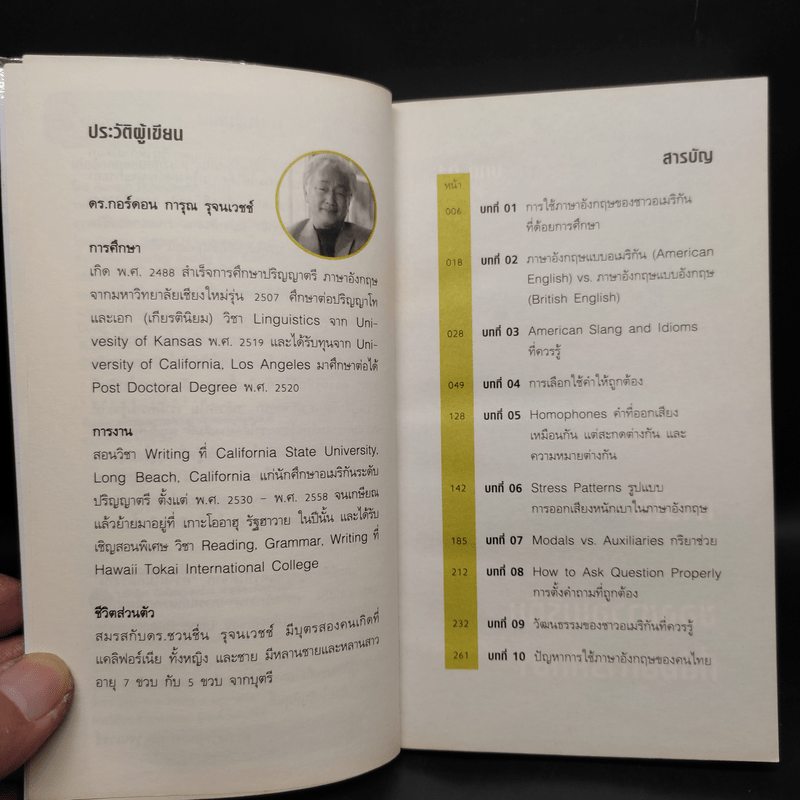 ประวัติผู้เขียน
ดร.กอร์ดอน การุณ รุจนเวชช์
การศึกษา
เกิด พ.ศ. 2488 สำเร็จการศึกษาปริญญาตรี ภาษาอังกฤษ
จากมหาวิทยาลัยเชียงใหม่รุ่น 2507 ศึกษาต่อปริญญาโท
และเอก (เกียรตินิยม) วิชา Linguistics จาก Uni-
vesity of Kansas พ.ศ. 2519 และได้รับทุนจาก Uni-
versity of California, Los Angeles มาศึกษาต่อได้
Post Doctoral Degree พ.ศ. 2520
การงาน
สอนวิชา Writing ที่ California State University,
Long Beach, California แก่นักศึกษาอเมริกันระดับ
ปริญญาตรี ตั้งแต่ พ.ศ. 2530 – พ.ศ. 2558 จนเกษียณ
แล้วย้ายมาอยู่ที่ เกาะโออาฮุ รัฐฮาวาย ในปีนั้น และได้รับ
เชิญสอนพิเศษ วิชา Reading, Grammar, Writing ที่
Hawaii Tokai International College
ชีวิตส่วนตัว
สมรสกับดร.ชวนชื่น รุจนเวชช์ มีบุตรสองคนเกิดที่
แคลิฟอร์เนีย ทั้งหญิง และชาย มีหลานชายและหลานสาว
อายุ 7 ขวบ กับ 5 ขวบ จากบุตรี
สารบัญ
หน้า
006 บทที่ 01 การใช้ภาษาอังกฤษของชาวอเมริกัน
ที่ด้อยการศึกษา
018 บทที่ 02 ภาษาอังกฤษแบบอเมริกัน (American
English) vs. ภาษาอังกฤษแบบอังกฤษ
(British English)
028 บทที่ 03 American Slang and Idioms
ที่ควรรู้
049 บทที่ 04 การเลือกใช้คำให้ถูกต้อง
128 บทที่ 05 Homophones คำที่ออกเสียง
เหมือนกัน แต่สะกดต่างกัน และ
ความหมายต่างกัน
142 บทที่ 06 Stress Patterns รูปแบบ
การออกเสียงหนักเบาในภาษาอังกฤษ
185 บทที่ 07 Modals vs. Auxiliaries กริยาช่วย
212 บทที่ 08 How to Ask Question Properly
การตั้งคำถามที่ถูกต้อง
232 บทที่ 09 วัฒนธรรมของชาวอเมริกันที่ควรรู้
261 บทที่ 10 ปัญหาการใช้ภาษาอังกฤษของคนไทย